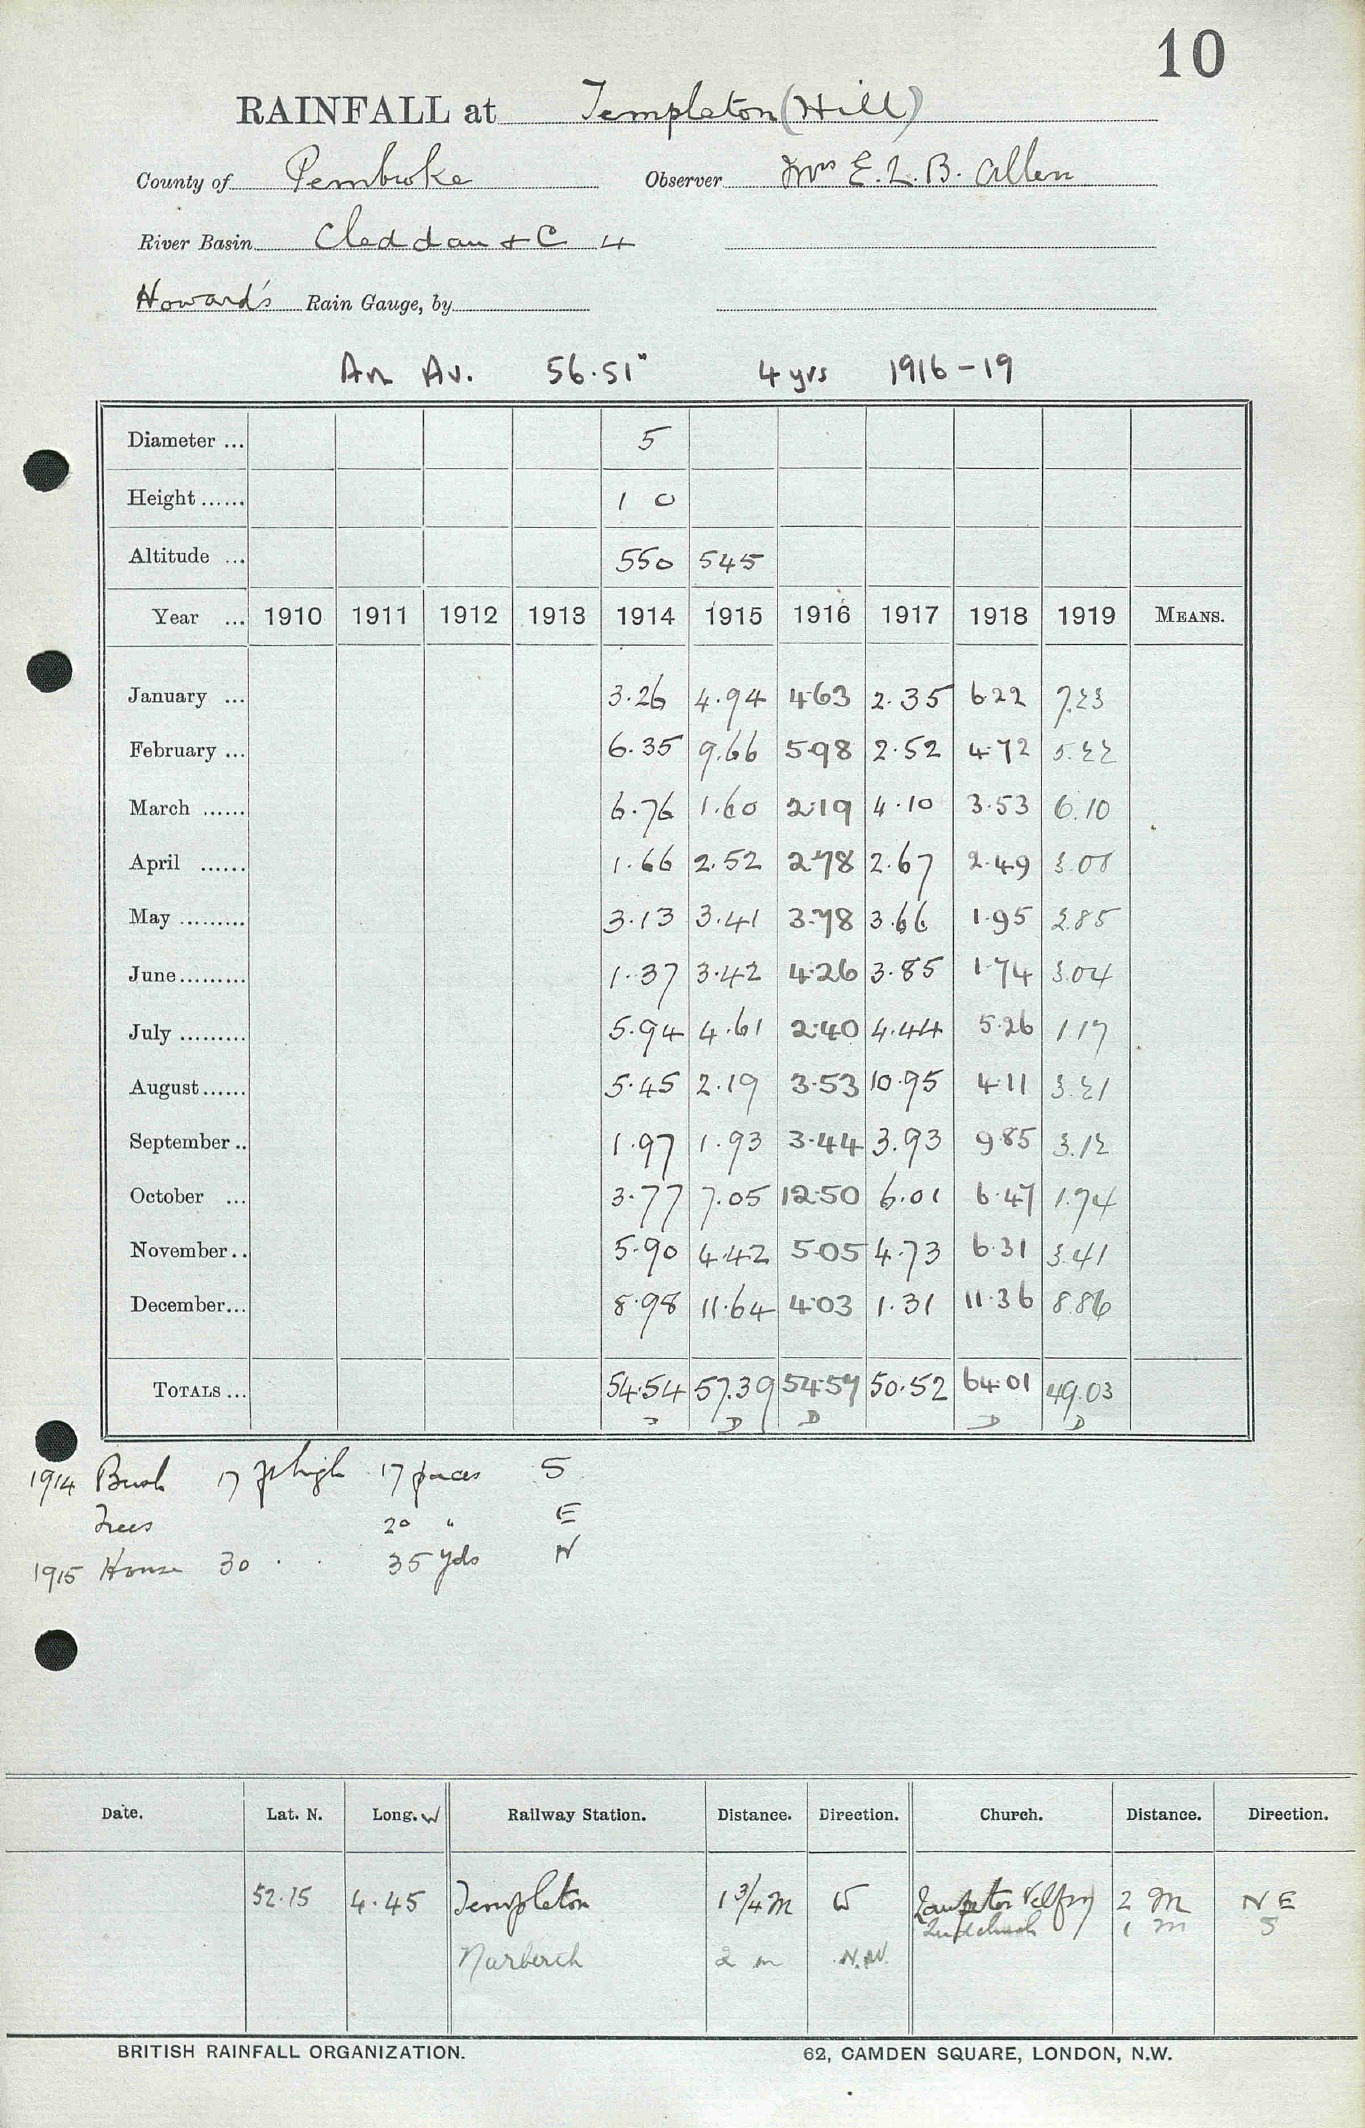 10
RAINFALL at Templeton (Hill)
County of Pembroke Observer Mrs E. L. B. Allen
River Basin Cleddau & C 4
Howard's Rain Gauge, by
An Av. 56.51" 4 yrs 1916-19
Diameter ... 5
Height ...... 1 0
Altitude ... 550 545
Year ... 1910 1911 1912 1913 1914 1915 1916 1917 1918 1919 MEANS.
January ... 3.26 4.94 4.63 2.35 6.22 7.23
February ... 6.35 9.66 5.98 2.52 4.72 5.22
March ...... 6.76 1.60 2.19 4.10 3.53 6.10
April ...... 1.66 2.52 2.78 2.67 2.49 3.08
May ......... 3.13 3.41 3.78 3.66 1.95 2.85
June ......... 1.37 3.42 4.26 3.85 1.74 3.04
July ......... 5.94 4.61 2.40 4.44 5.26 1.17
August ...... 5.45 2.19 3.53 10.95 4.11 3.21
September .. 1.97 1.93 3.44 3.93 9.85 3.12
October ... 3.77 7.05 12.50 6.01 6.47 1.74
November .. 5.90 4.42 5.05 4.73 6.31 3.41
December... 8.98 11.64 4.03 1.31 11.36 8.86
TOTALS ... 54.54 57.39 54.57 50.52 64.01 49.03
D D D D D
1914 Bush 17 ft high 17 paces S
Trees 20 " E
1915 House 30 . . 35 yds N
Date. Lat. N. Long. W Railway Station. Distance. Direction. Church. Distance. Direction.
52.15 4.45 Templeton 1 3/4 M W Lampeter Velfry 2 M NE
Ludchurch 1 m S
Narberth 2 m N.NW.
BRITISH RAINFALL ORGANIZATION. 62, CAMDEN SQUARE, LONDON, N.W.